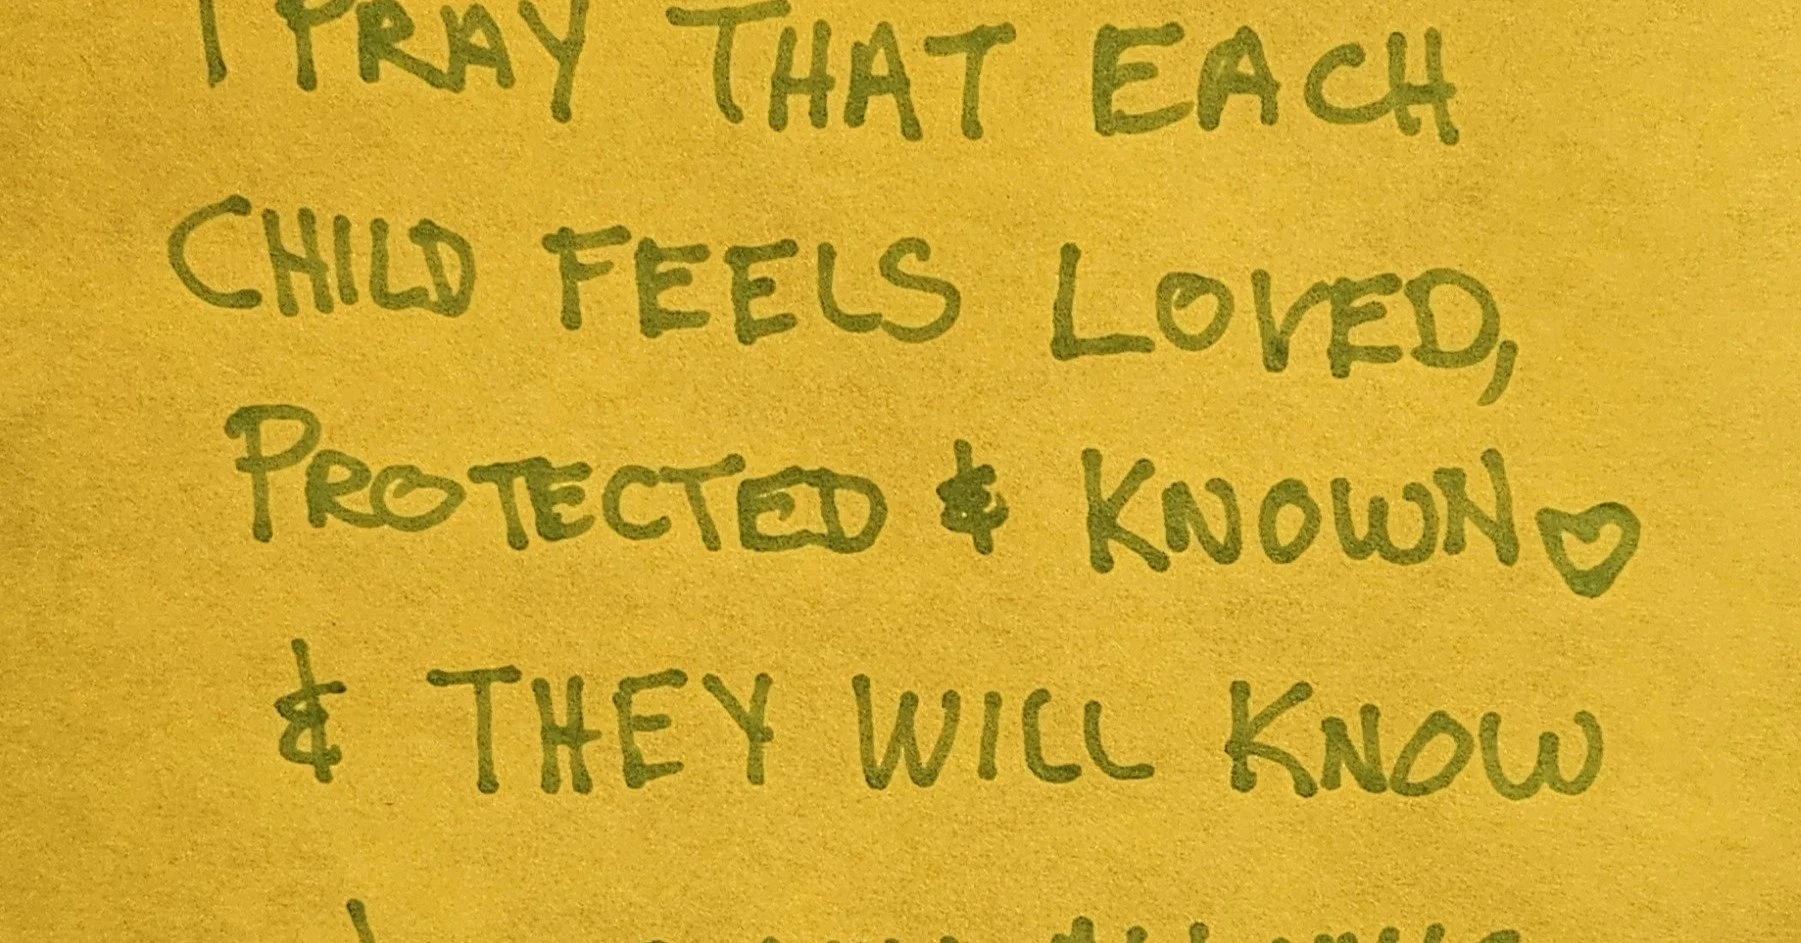 I PRAY THAT EACH
CHILD FEELS LOVED,
PROTECTED & KNOWN♡
& THEY WILL KNOW